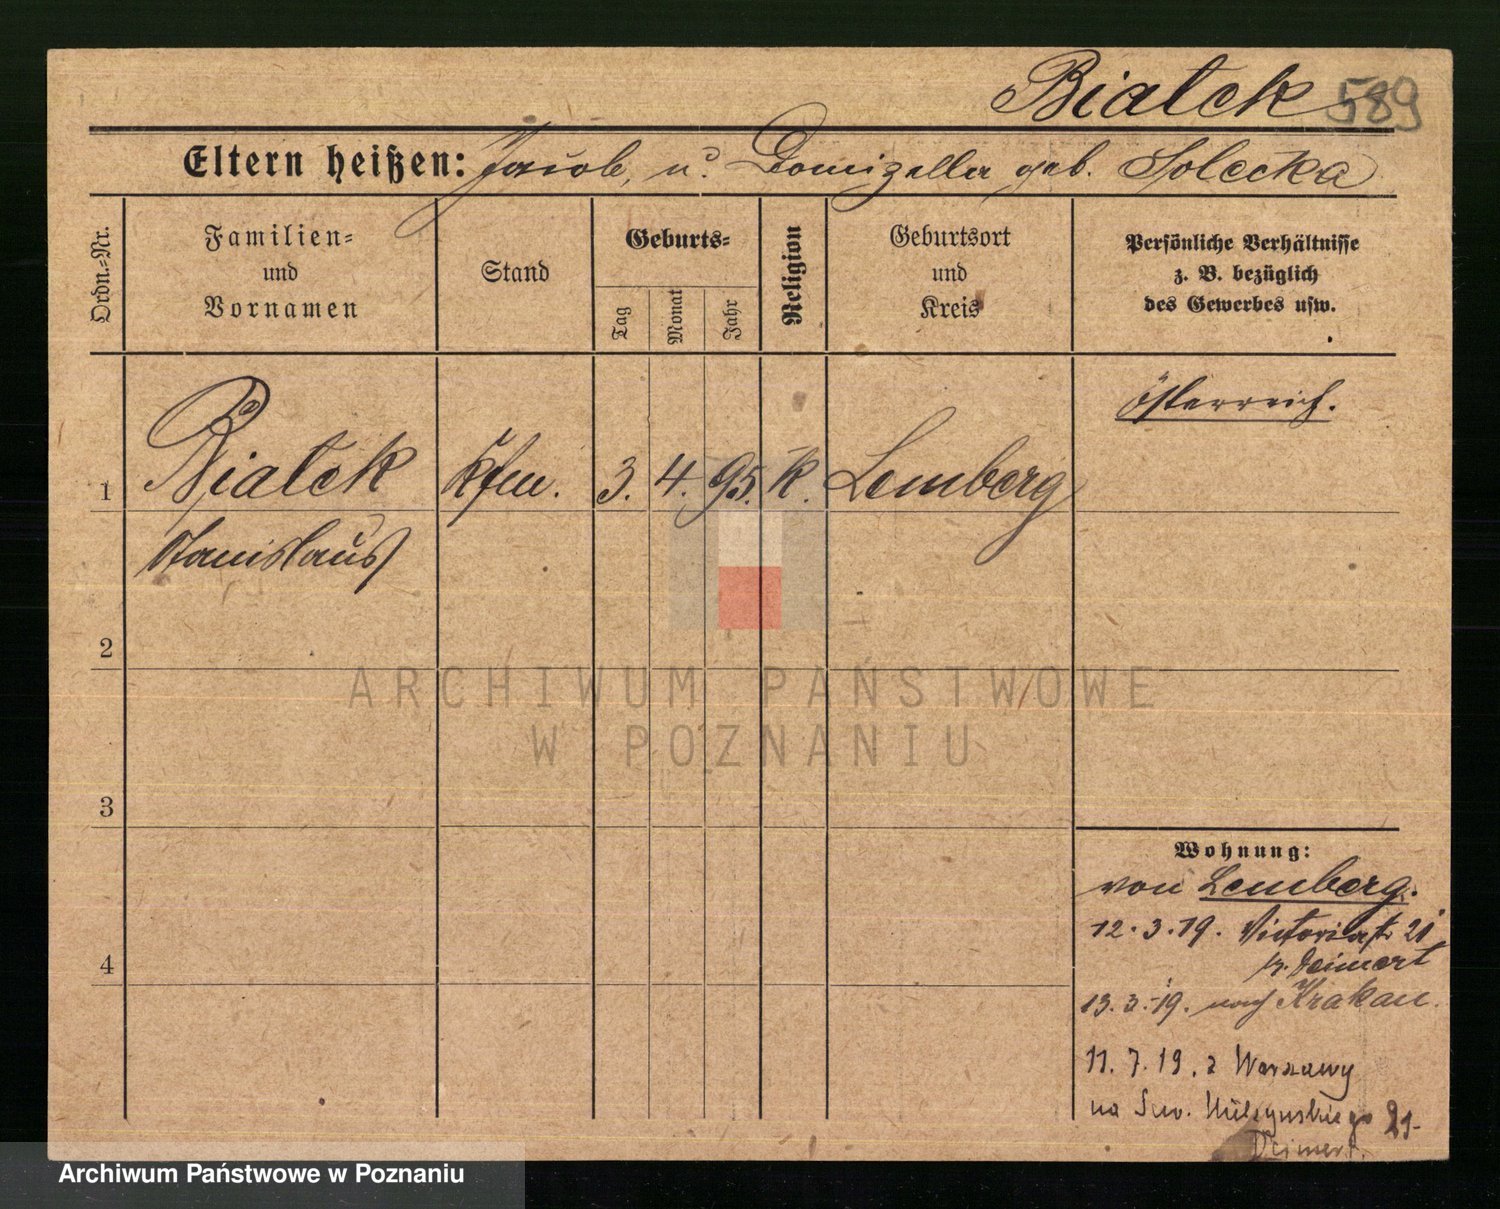 Bialek 589
Eltern heißen: Jacob, u. Domizella geb. Solecka
Ordn.-Nr.
Familien-
und
Vornamen
Stand
Geburts-
Tag
Monat
Jahr
Religion
Geburtsort
und
Kreis
Persönliche Verhältnisse
z. B. bezüglich
des Gewerbes usw.
Österreich.
1 Bialek Kfm. 3. 4. 95. k. Lemberg
Stanislaus
2
3
4
Wohnung:
von Lemberg.
12.3.19. Victoriastr 21
b. Deimert
13.3.19. nach Krakau.
11.7.19. z Warszawy
na Sew. 21
Deimert.
ARCHIWUM PAŃSTWOWE
W POZNANIU
Archiwum Państwowe w Poznaniu